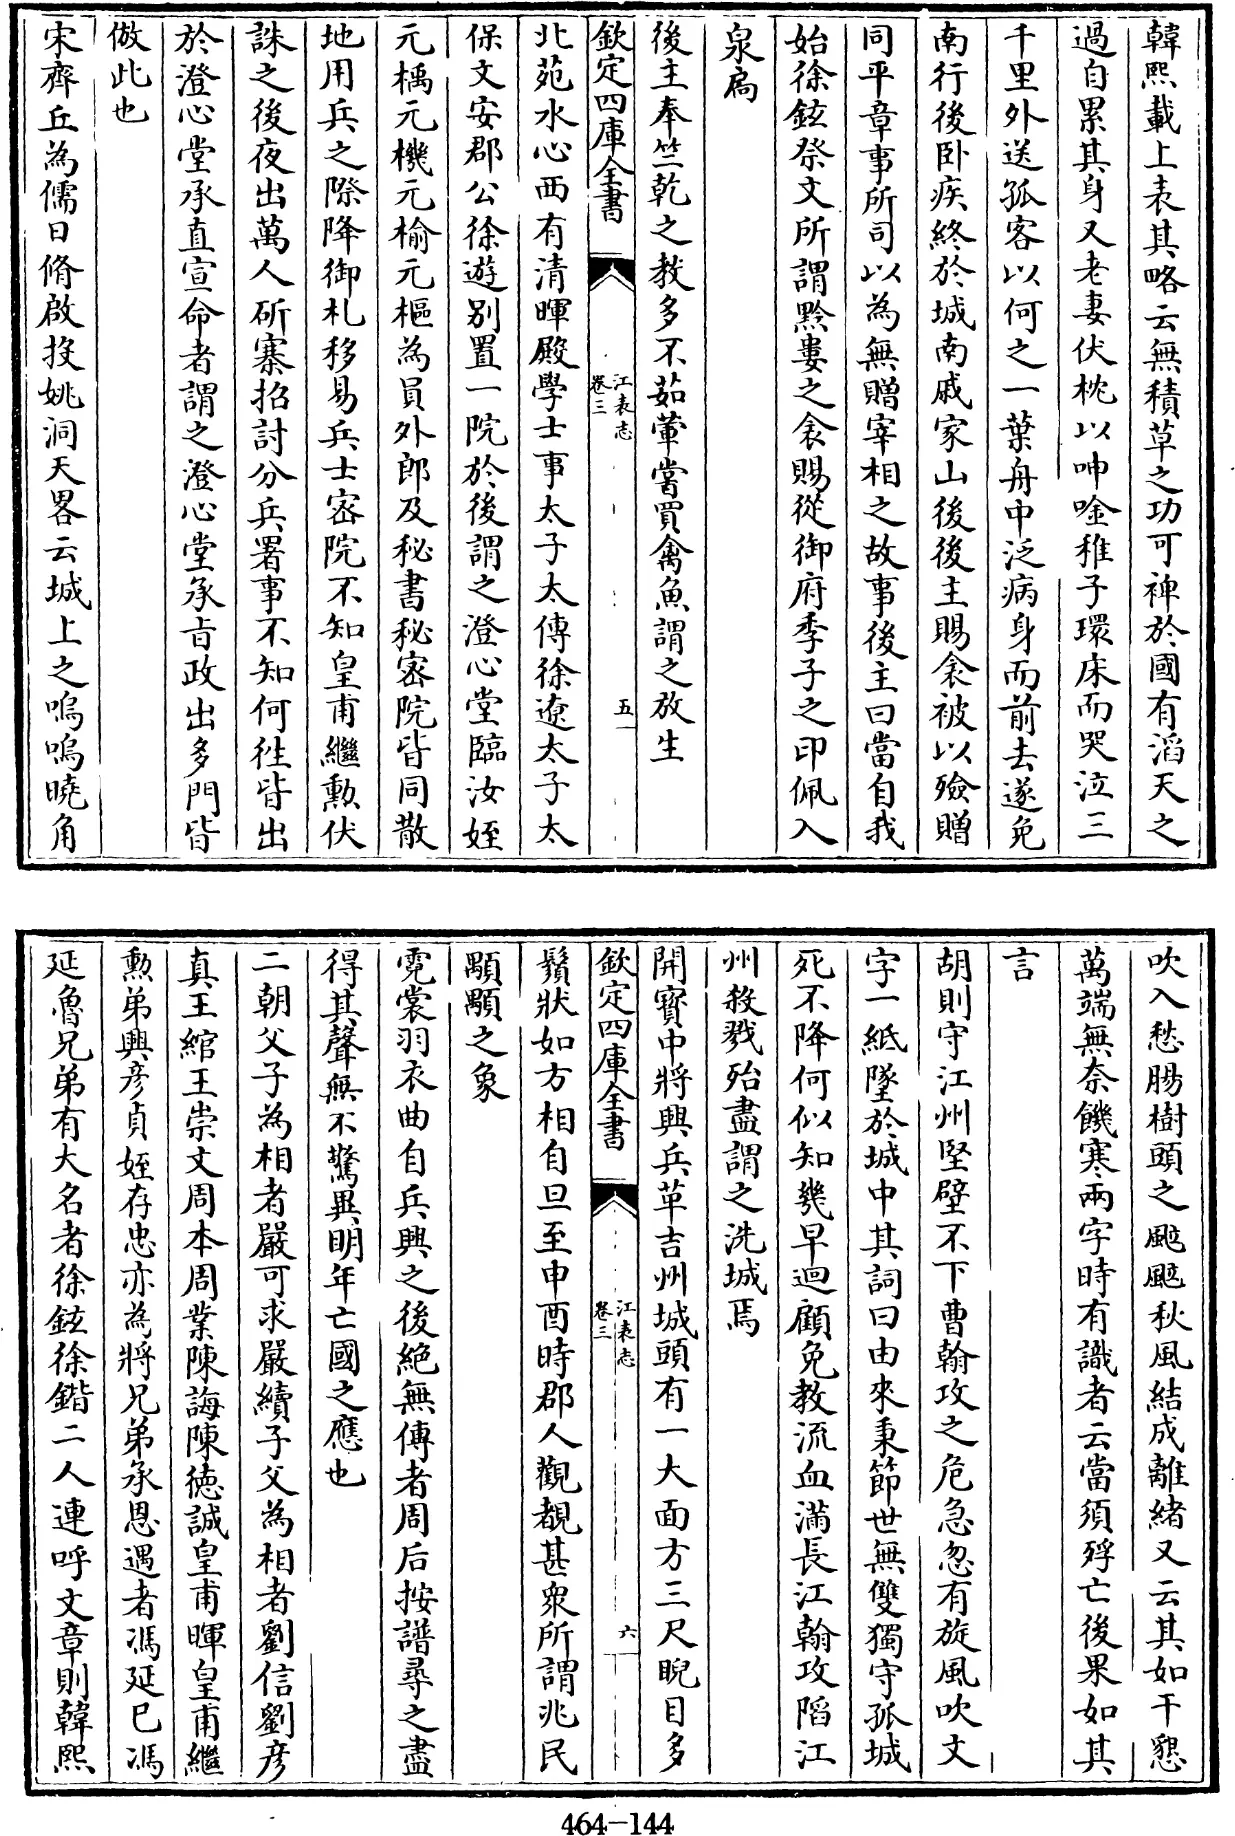 韓熙載上表其略云無積草之功可裨於國有滔天之
過自累其身又老妻伏枕以呻唫稚子環床而哭泣三
千里外送孤客以何之一葉舟中泛病身而前去遂免
南行後卧疾終於城南戚家山後後主賜衾被以殮贈
同平章事所司以為無贈宰相之故事後主曰當自我
始徐鉉祭文所謂黔婁之衾賜從御府季子之印佩入
泉扃
後主奉竺乾之教多不茹葷嘗買禽魚謂之放生
欽定四庫全書
江表志
卷三
五
北苑水心西有清暉殿學士事太子太傅徐遼太子太
保文安郡公徐遊別置一院於後謂之澄心堂臨汝姪
元楀元機元榆元樞為員外郎及秘書秘密院皆同散
地用兵之際降御札移易兵士密院不知皇甫繼勲伏
誅之後夜出萬人斫寨招討分兵署事不知何徃皆出
於澄心堂承直宣命者謂之澄心堂承旨政出多門皆
倣此也
宋齊丘為儒日脩啟投姚洞天畧云城上之嗚嗚曉角
吹入愁腸樹頭之颭颭秋風結成離緒又云其如干懇
萬端無奈饑寒兩字時有識者云當須殍亡後果如其
言
胡則守江州堅壁不下曹翰攻之危急忽有旋風吹文
字一紙墜於城中其詞曰由來秉節世無雙獨守孤城
死不降何似知幾早迴顧免教流血滿長江翰攻陷江
州殺戮殆盡謂之洗城焉
開寶中將興兵革吉州城頭有一大面方三尺睨目多
欽定四庫全書
江表志
卷三
六
鬚狀如方相自旦至申酉時郡人觀覩甚衆所謂兆民
顒顒之象
霓裳羽衣曲自兵興之後絕無傳者周后按譜尋之盡
得其聲無不驚異明年亡國之應也
二朝父子為相者嚴可求嚴續子父為相者劉信劉彦
真王綰王崇文周本周業陳誨陳徳誠皇甫暉皇甫繼
勲弟興彦貞姪存忠亦為將兄弟承恩遇者馮延巳馮
延魯兄弟有大名者徐鉉徐鍇二人連呼文章則韓熙
464-144